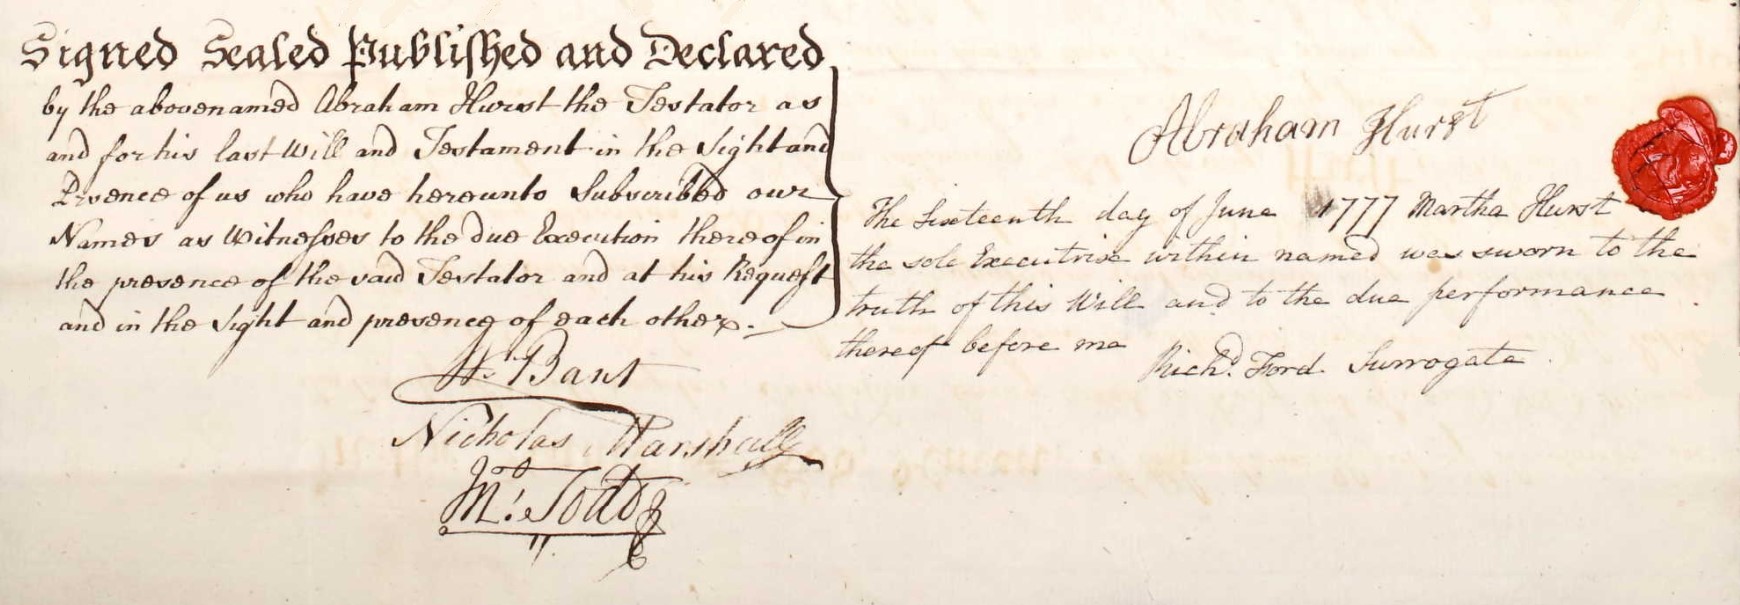 Signed Sealed Published and Declared
by the abovenamed Abraham Hurst the Testator as
and for his last Will and Testament in the Sight and
Presence of us who have hereunto Subscribed our
Names as Witnesses to the due Execution thereof in
the presence of the said Testator and at his Request
and in the Sight and presence of each other.
Bant
Nicholas Marshall
Jno. Todd
Abraham Hurst
The Sixteenth day of June 1777 Martha Hurst
the sole Executrix within named was sworn to the
truth of this Will and to the due performance
thereof before me
Richd. Ford Surrogate.